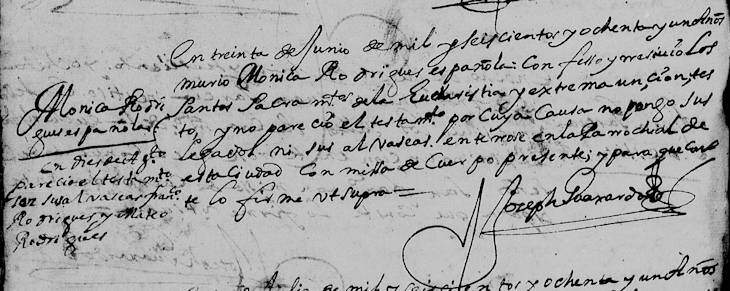 En treinta de Junio de mil y seiscientos y ochenta y un Años
murio Monica Rodrigues española: Confesso y rescivio Los
Santos Sacramtos de la Eucharistia y extrema unçion, tes
to, y no parecio el testamto por Cuya Causa no pongo sus
legados ni sus alvaseas. enterrose en la Parrochial de
esta Ciudad Con missa de Cuerpo presente; y para que Cons
te lo firmé Vt Supra
Joseph
Monica Rodri
gues española
En dies de
parecio el testamto
sus alvaseas franco
Rodrigues y Mateo
Rodrigues
de mil y seiscientos y ochenta y un Años